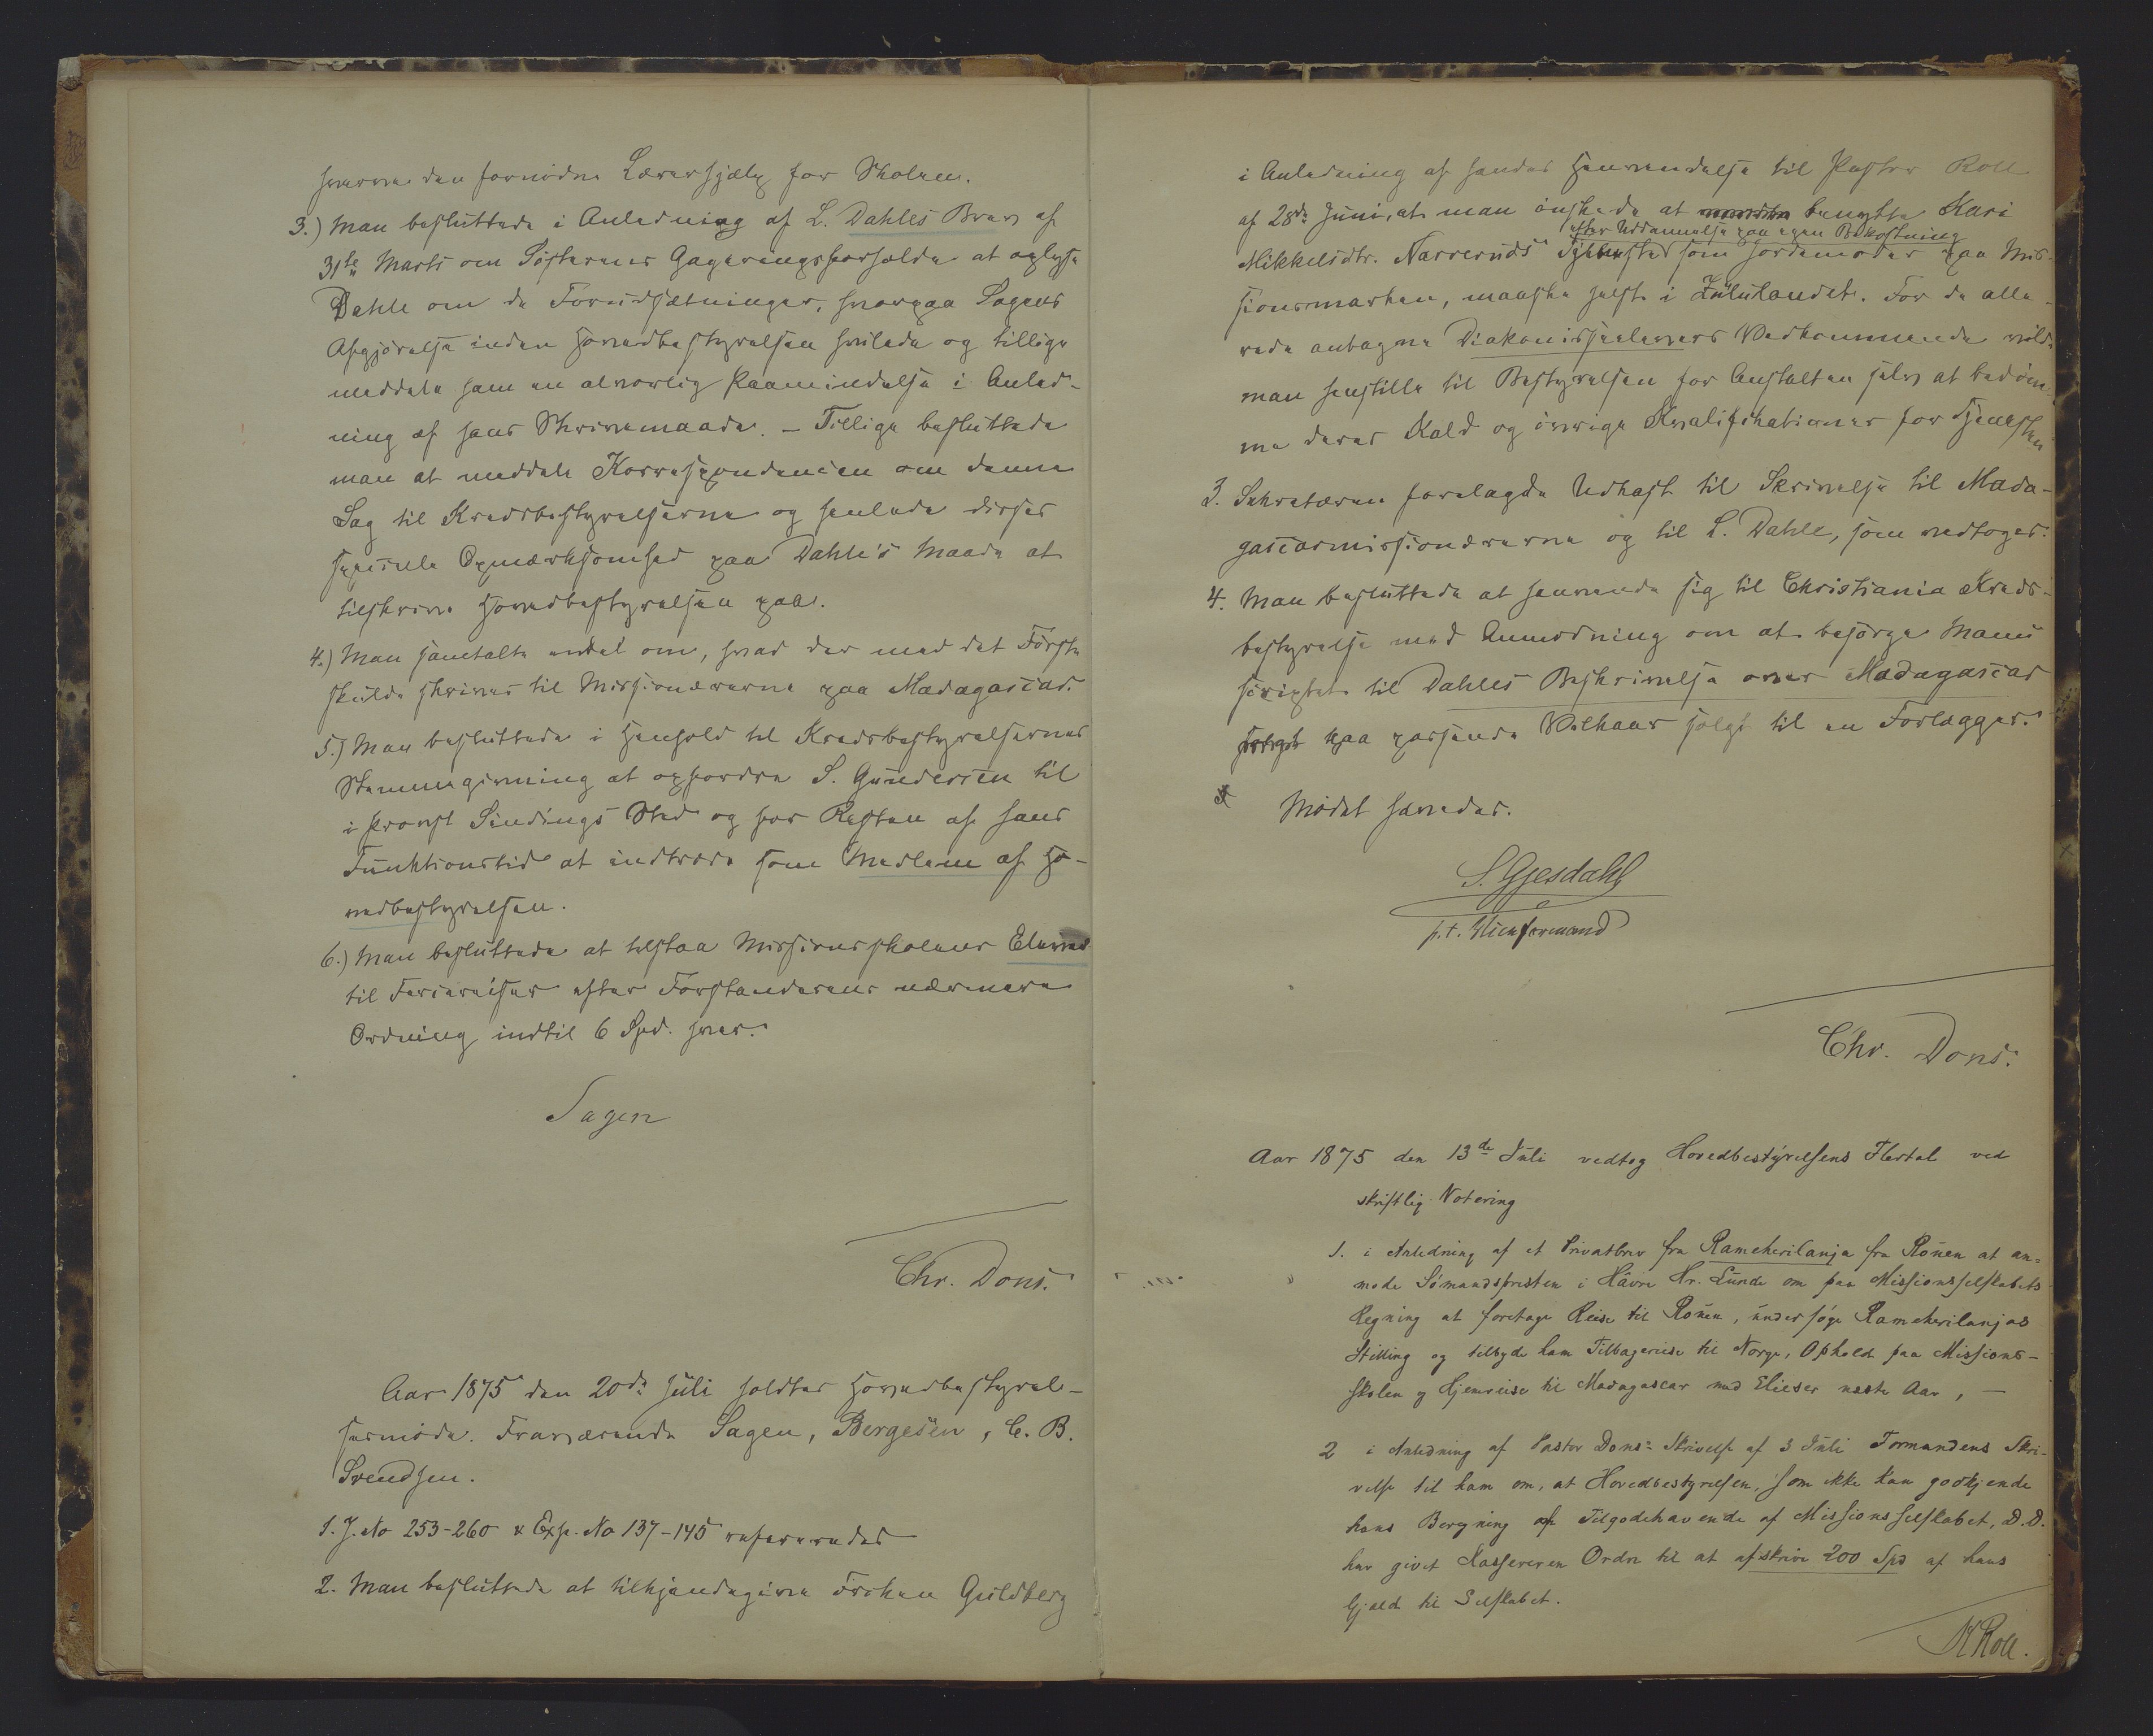 hverve den fornødne Lærerhjælp for Skolen.
3.) Man besluttede i Anledning af L. Dahles Brev af
31te Marts om Søstrenes Gageringsforholde at oplyse
Dahle om de Forudsætninger, hvorpaa Sagens
Afgjørelse inden Hovedbestyrelsen hvilede og tillige
meddele ham en alvorlig Paamindelse i Anled-
ning af hans Skrivemaade. – Tillige besluttede
man at meddele Korrespondencen om denne
Sag til Kredsbestyrelserne og henlede disses
specielle Opmærksomhed paa Dahle's Maade at
tilskrive Hovedbestyrelsen paa.
4.) Man samtalte endel om, hvad der med det Første
skulde skrives til Missionærerne paa Madagascar.
5.) Man besluttede i Henhold til Kredsbestyrelsernes
Stemmegivning at opfordre S. Gundersen til
i Provst Sindings Sted og for Resten af hans
Funktionstid at indtræde som Medlem af Ho-
vedbestyrelsen.
6.) Man besluttede at tilstaa Missionsskolens Elever
til Feriereiser efter Forstanderens nærmere
Ordning indtil 6 Spd. hver.
Sagen
Chr. Dons.
Aar 1875 den 20de Juli holdtes Hovedbestyrel-
sesmøde. Fraværende Sagen, Bergesen, C. B.
Svendsen.
1. J. No 253-260 & Exp. No 137-145 refereredes
2. Man besluttede at tilkjendegive Frøken Guldberg
i Anledning af hendes Henvendelse til Pastor Roll
af 28de Juni, at man ønskede at benytte Kari
efter Uddannelse paa egen Bekostning
Mikkelsdtr. Narveruds Tjeneste som Jordemoder paa Mis-
sionsmarken, maaske helst i Zululandet. For de alle-
rede antagne Diakonisseelevers Vedkommende vilde
man henstille til Bestyrelsen for Anstalten selv at bedøm-
me deres Kald og øvrige Kvalifikationer for Tjenesten
3. Sekretæren forelagde Udkast til Skrivelse til Mada-
gascarmissionærerne og til L. Dahle, som vedtoges.
4. Man besluttede at henvende sig til Christiania Kreds-
bestyrelse med Anmodning om at besørge Manu-
scriptet til Dahles Beskrivelse over Madagascar
paa passende Vilkaar solgt til en Forlægger.
Mødet hævedes.
S. Gjesdahl
p.t. Viceformand
Chr. Dons.
Aar 1875 den 13de Juli vedtog Hovedbestyrelsens Flertal ved
skriftlig Votering
1. i Anledning af et Privatbrev fra Rameherilanja fra Rouen at an-
mode Sømandspresten i Hâvre Hr. Lunde om paa Missionsselskabets
Regning at foretage Reise til Rouen, undersøge Rameherilanjas
Stilling og tilbyde ham Tilbagereise til Norge, Ophold paa Missions-
skolen og Hjemreise til Madagascar med Elieser næste Aar, —
2 i Anledning af Pastor Dons's Skrivelse af 3 Juli Formandens Skri-
velse til ham om, at Hovedbestyrelsen, som ikke kan godkjende
hans Beregning af Tilgodehavende af Missionsselskabet, D.D.
har givet Kassereren Ordre til at afskrive 200 Spd af hans
Gjæld til Selskabet.
N Roll.